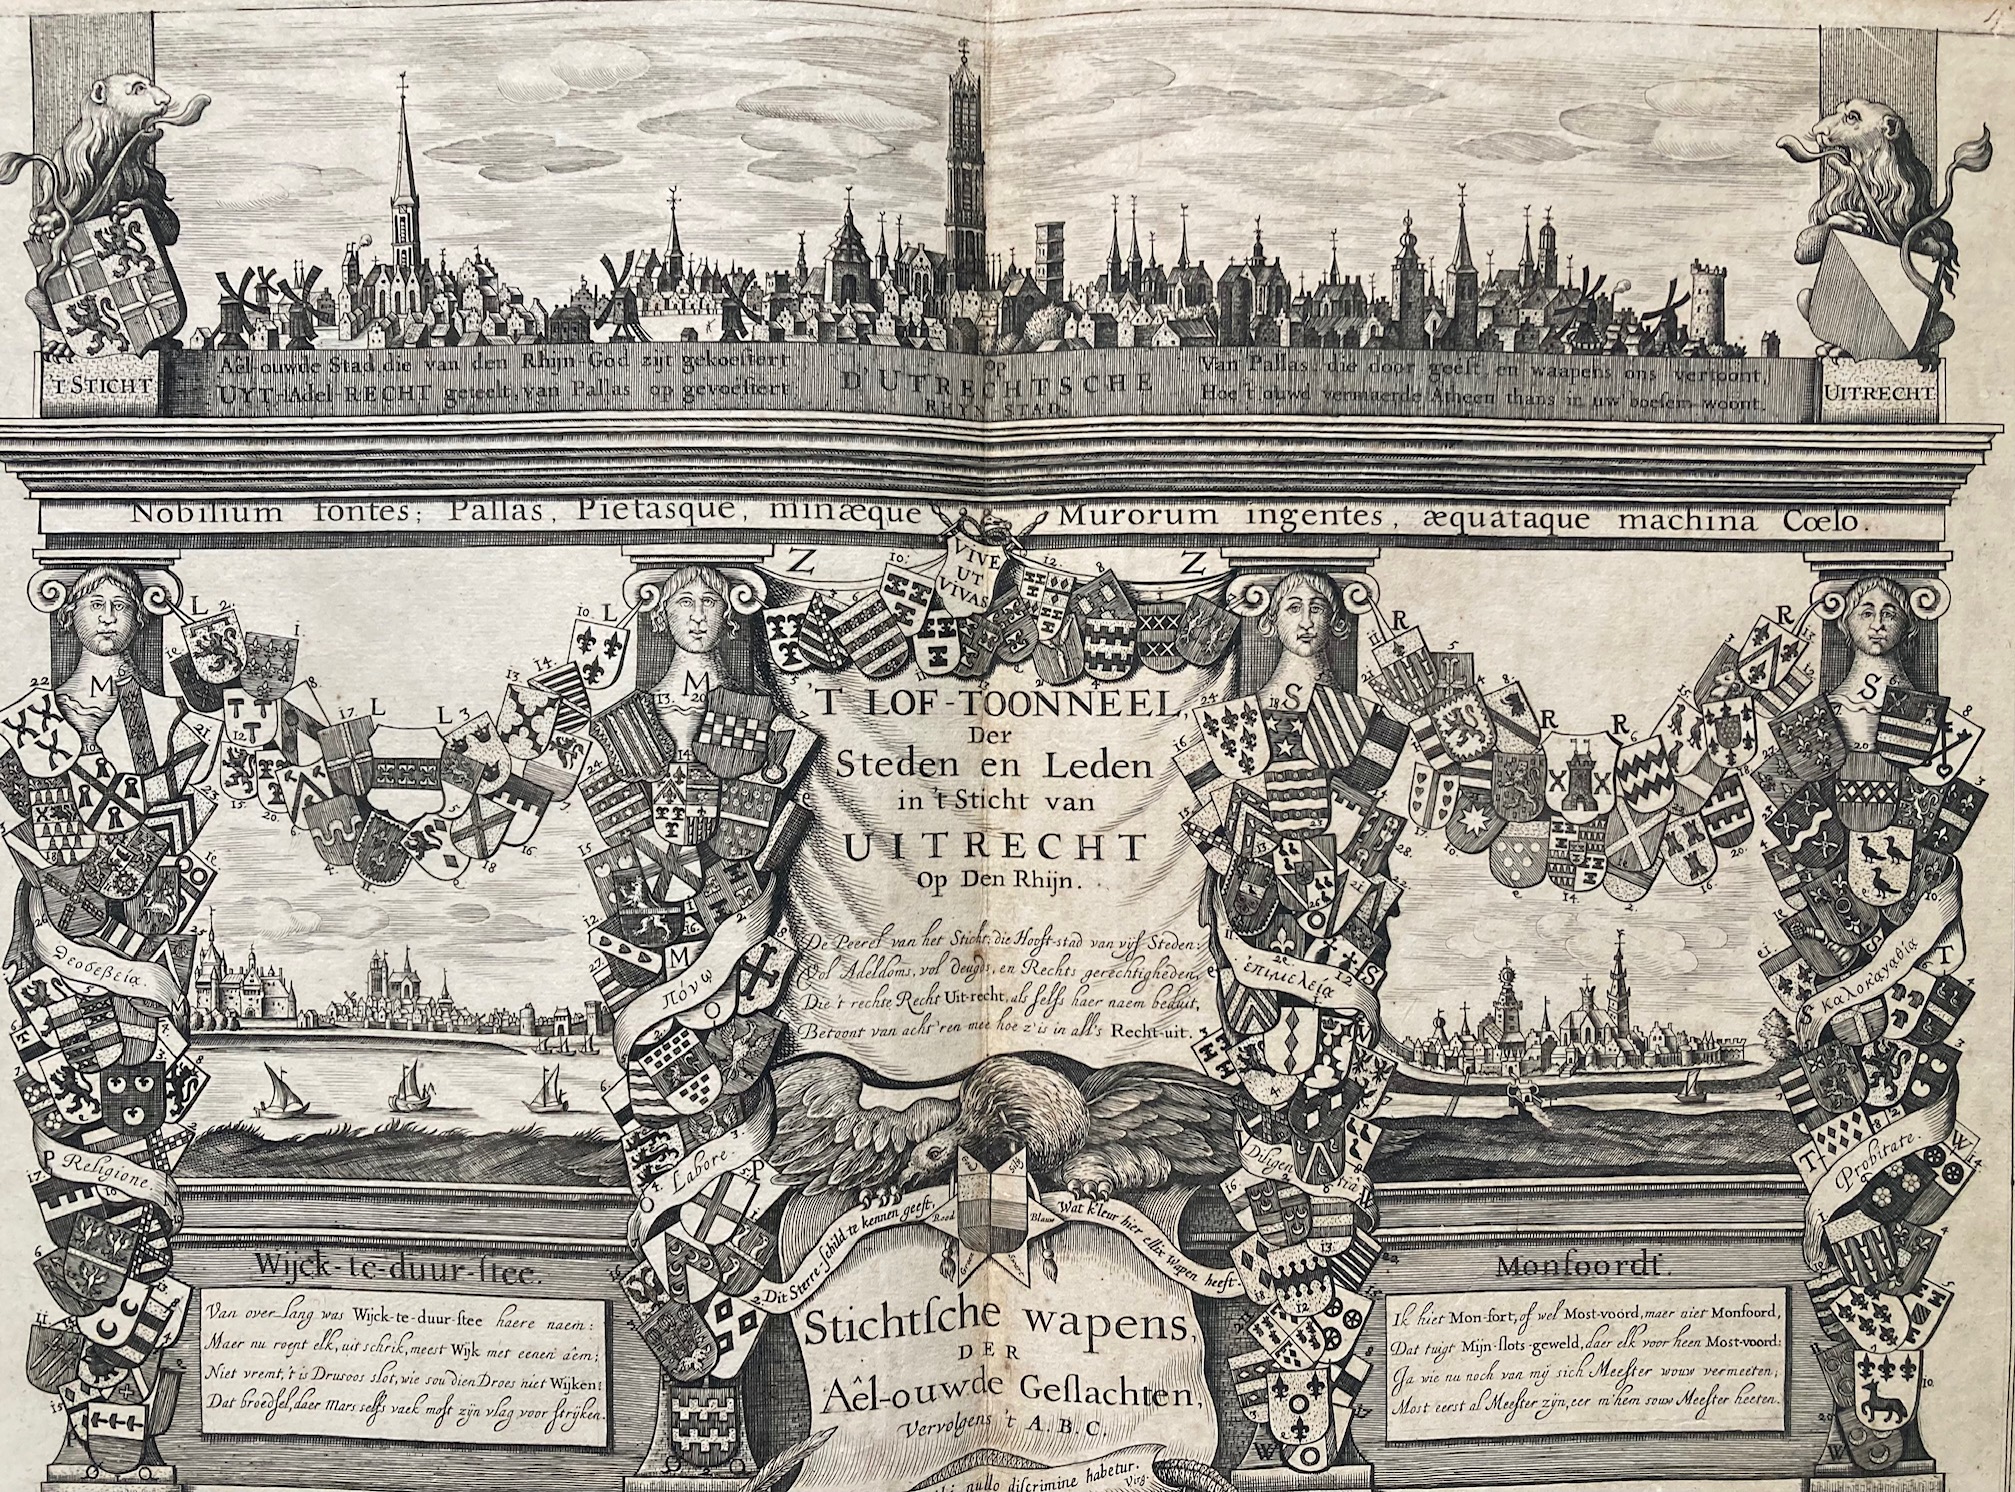 'T STICHT
Aêl-ouwde Stad, die van den Rhijn-God zijt gekoestert
UYT-Adel-RECHT geteelt, van Pallas op gevoestert
op
D'UTRECHTSCHE
RHYN-STAD.
Van Pallas! die door geest, en waapens ons vertoont,
Hoe 't ouwd vermaerde Atheen thans in uw boesem woont.
UITRECHT
Nobilium fontes; Pallas, Pietasque, minæque
Murorum ingentes, æquataque machina Cœlo.
VIVE
UT
VIVAS
'T LOF-TOONNEEL,
Der
Steden en Leden
in 't Sticht van
UITRECHT
Op Den Rhijn.
De Peerel van het Sticht; die Hooft-stad van vijf Steden:
Vol Adeldoms, vol deugds, en Rechts gerechtigheden,
Die 't rechte Recht Uit-recht, als selfs haer naem beduit,
Betoont van acht'ren mee hoe z'is in all's Recht-uit.
Θεοσέβεια.
Religione.
Πόνω
Labore.
Ἐπιμελεία
Diligentia
Καλοκαγαθία
Probitate.
Dit Sterre-schild te kennen geeft,
Rood
Blauw
Wat kleur hier ellix wapen heeft.
Wijck-te-duur-stee.
Van over-lang was Wijck-te-duur-stee haere naem:
Maer nu roept elk, uit schrik, meest Wijk met eenen aêm;
Niet vremt, 't is Drusoos slot, wie sou dien Droes niet Wijken:
Dat broedsel, daer Mars selfs vaek most zijn vlag voor strijken.
Stichtsche wapens,
DER
Aêl-ouwde Geslachten,
Vervolgens 't A.B.C.
nullo discrimine habetur.
Virg.
Monfoordt.
Ik hiet Mon-fort, of wel Most-voord, maer niet Monfoord,
Dat tuigt Mijn-slots-geweld, daer elk voor heen Most-voord:
Ja wie nu noch van mij sich Meester wouw vermeeten,
Most eerst al Meester zijn, eer m'hem souw Meester heeten.